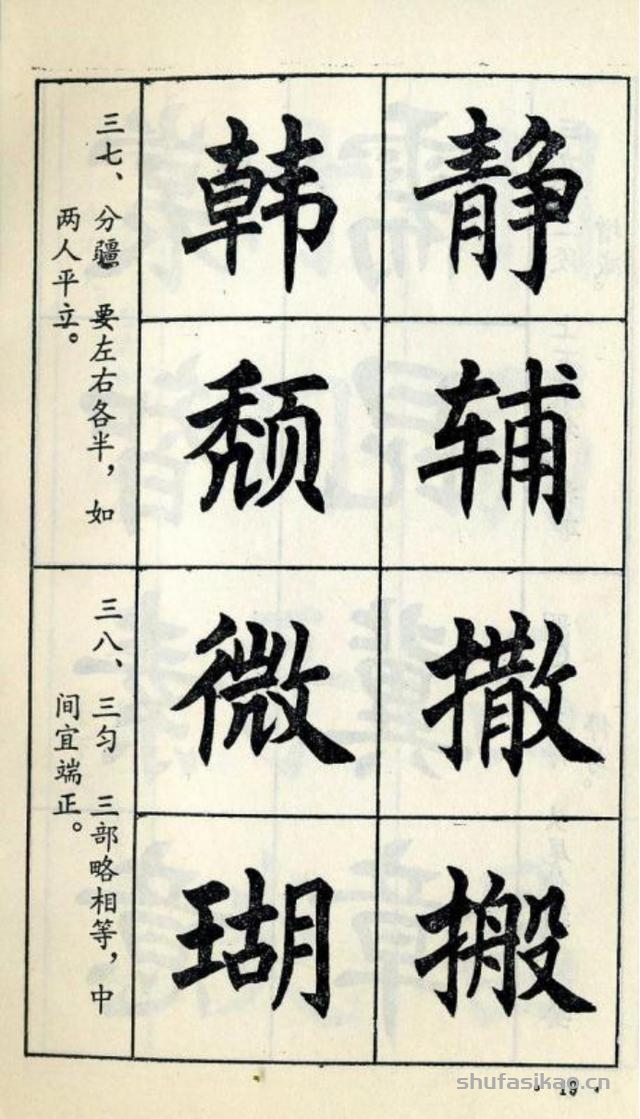 静
辅
韩
颓
三七、分疆 要左右各半，如
两人平立。
撒
搬
微
瑚
三八、三匀 三部略相等，中
间宜端正。
shufasikao.cn
· 19 ·